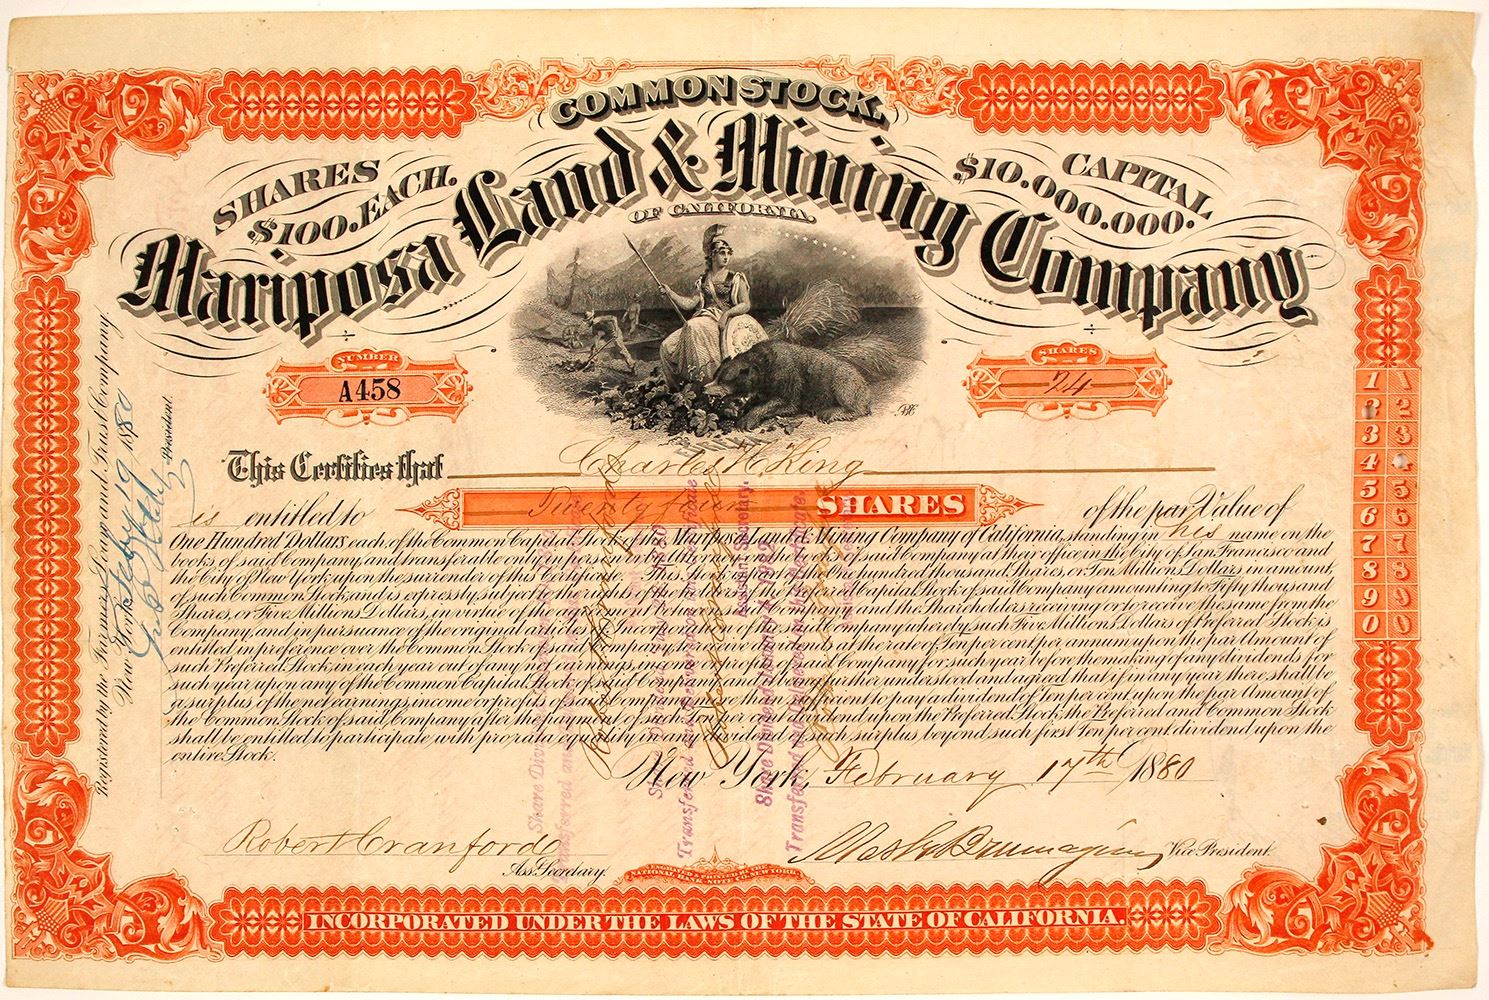 COMMON STOCK
SHARES
$100. EACH.
CAPITAL
$10.000.000.
Mariposa Land & Mining Company
OF CALIFORNIA.
NUMBER
A458
SHARES
24
This Certifies that Charles H. King
is entitled to Twenty four SHARES of the par Value of
One Hundred Dollars each, of the Common Capital Stock of the Mariposa Land & Mining Company of California, standing in his name on the
books of said Company, and transferable only in person or by Attorney on the books of said Company at their office in the City of San Francisco and
the City of New York upon the surrender of this Certificate. This Share is part of the One hundred thousand Shares, or Ten Millions Dollars in amount,
of such Common Stock and is expressly subject to the rights of the of the Capital Stock of said Company amounting to Fifty thousand
Shares, or Five Millions Dollars, in virtue of the and the Shareholders receiving or to receive the same from the
Company, and in pursuance of the original articles of Incorporation of the said Company whereby such Five Millions Dollars of Preferred Stock is
entitled in preference over the Common Stock of said Company to receive dividends at the rate of Ten per cent per annum upon the par Amount of
such Preferred Stock, in each year out of any net earnings, income or profits of said Company for such year before the making of any dividends for
such year upon any of the Common Capital Stock of said Company and it is further understood and agreed that if in any year there shall be
a surplus of the net earnings income or profits of said Company more than sufficient to pay a dividend of Ten per cent upon the par Amount of
the Common Stock of said Company after the payment of such Ten per cent dividend upon the Preferred Stock, the Preferred and Common Stock
shall be entitled to participate with pro rata equality in any dividend of such surplus beyond such first ten per cent dividend upon the
entire Stock.
New York, February 17th 1880
Robert Cranford
Ass. Secretary.
Vice President.
NATIONAL BANK NOTE CO. NEW YORK
INCORPORATED UNDER THE LAWS OF THE STATE OF CALIFORNIA.
Registered by the Farmers Loan and Trust Company.
New York Feby 19 1880
President.
Assistant Secretary.
1 1
2 2
3 3
4 4
5 5
6 6
7 7
8 8
9 9
0 0